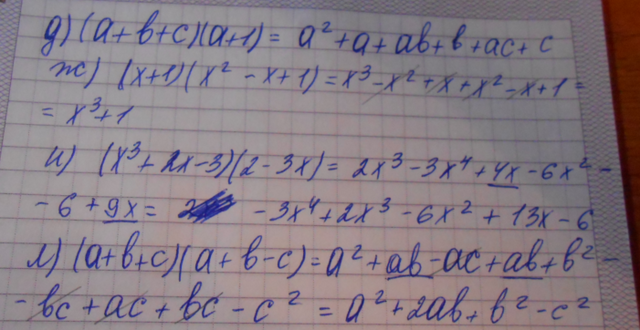 д) (a+b+c)(a+1) = a² + a + ab + b + ac + c
ж) (x+1)(x² - x + 1) = x³ - x² + x + x² - x + 1 =
= x³ + 1
и) (x³ + 2x - 3)(2 - 3x) = 2x³ - 3x⁴ + 4x - 6x² -
- 6 + 9x = - 3x⁴ + 2x³ - 6x² + 13x - 6
л) (a+b+c)(a+b-c) = a² + ab - ac + ab + b² -
- bc + ac + bc - c² = a² + 2ab + b² - c²